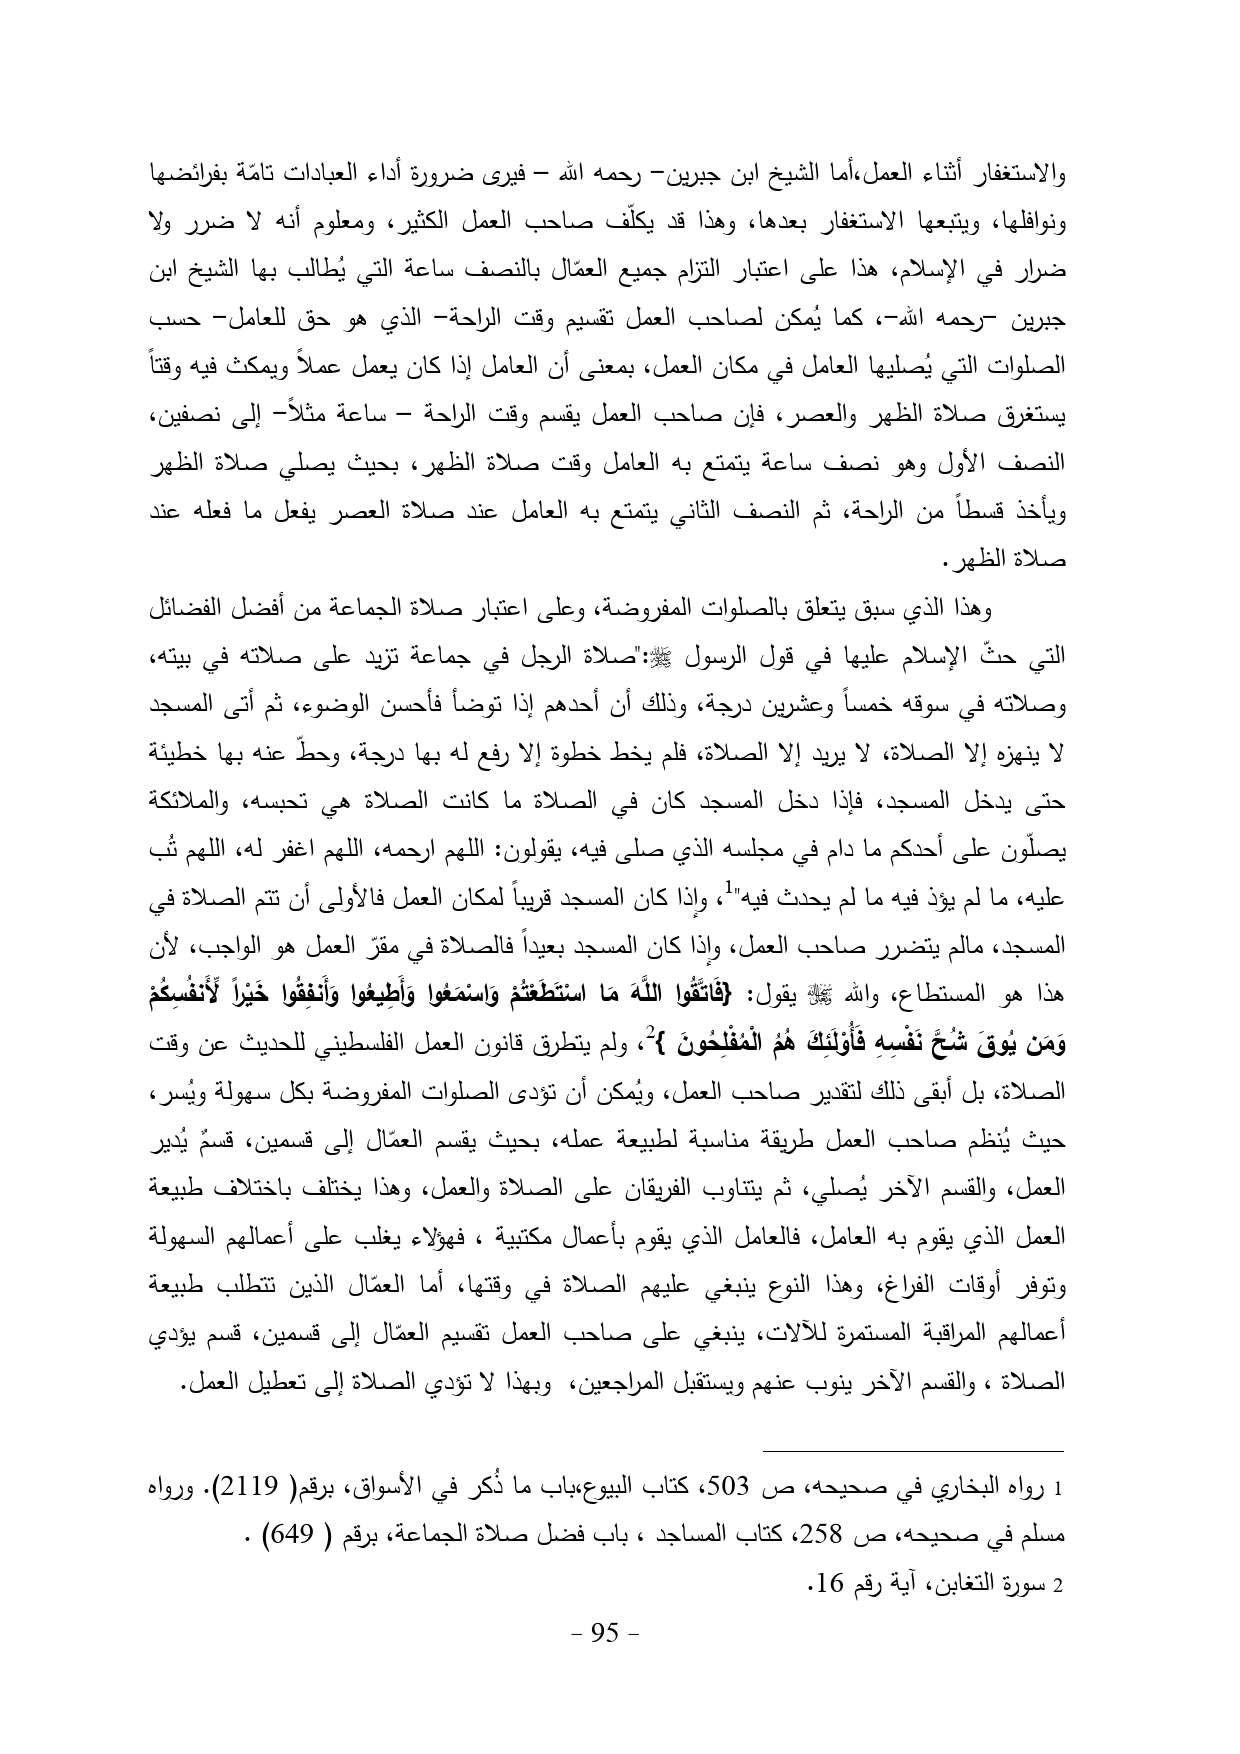 والاستغفار أثناء العمل،أما الشيخ ابن جبرين– رحمه الله – فيرى ضرورة أداء العبادات تامّة بفرائضها
ونوافلها، ويتبعها الاستغفار بعدها، وهذا قد يكلّف صاحب العمل الكثير، ومعلوم أنه لا ضرر ولا
ضرار في الإسلام، هذا على اعتبار التزام جميع العمّال بالنصف ساعة التي يُطالب بها الشيخ ابن
جبرين –رحمه الله–، كما يُمكن لصاحب العمل تقسيم وقت الراحة– الذي هو حق للعامل– حسب
الصلوات التي يُصليها العامل في مكان العمل، بمعنى أن العامل إذا كان يعمل عملاً ويمكث فيه وقتاً
يستغرق صلاة الظهر والعصر، فإن صاحب العمل يقسم وقت الراحة – ساعة مثلاً– إلى نصفين،
النصف الأول وهو نصف ساعة يتمتع به العامل وقت صلاة الظهر، بحيث يصلي صلاة الظهر
ويأخذ قسطاً من الراحة، ثم النصف الثاني يتمتع به العامل عند صلاة العصر يفعل ما فعله عند
صلاة الظهر.
وهذا الذي سبق يتعلق بالصلوات المفروضة، وعلى اعتبار صلاة الجماعة من أفضل الفضائل
التي حثّ الإسلام عليها في قول الرسول ﷺ:"صلاة الرجل في جماعة تزيد على صلاته في بيته،
وصلاته في سوقه خمساً وعشرين درجة، وذلك أن أحدهم إذا توضأ فأحسن الوضوء، ثم أتى المسجد
لا ينهزه إلا الصلاة، لا يريد إلا الصلاة، فلم يخط خطوة إلا رفع له بها درجة، وحطّ عنه بها خطيئة
حتى يدخل المسجد، فإذا دخل المسجد كان في الصلاة ما كانت الصلاة هي تحبسه، والملائكة
يصلّون على أحدكم ما دام في مجلسه الذي صلى فيه، يقولون: اللهم ارحمه، اللهم اغفر له، اللهم تُب
عليه، ما لم يؤذ فيه ما لم يحدث فيه"1، وإذا كان المسجد قريباً لمكان العمل فالأولى أن تتم الصلاة في
المسجد، مالم يتضرر صاحب العمل، وإذا كان المسجد بعيداً فالصلاة في مقرّ العمل هو الواجب، لأن
هذا هو المستطاع، والله ﷻ يقول: {فَاتَّقُوا اللَّهَ مَا اسْتَطَعْتُمْ وَاسْمَعُوا وَأَطِيعُوا وَأَنفِقُوا خَيْراً لِّأَنفُسِكُمْ
وَمَن يُوقَ شُحَّ نَفْسِهِ فَأُوْلَئِكَ هُمُ الْمُفْلِحُونَ }2، ولم يتطرق قانون العمل الفلسطيني للحديث عن وقت
الصلاة، بل أبقى ذلك لتقدير صاحب العمل، ويُمكن أن تؤدى الصلوات المفروضة بكل سهولة ويُسر،
حيث يُنظم صاحب العمل طريقة مناسبة لطبيعة عمله، بحيث يقسم العمّال إلى قسمين، قسمٌ يُدير
العمل، والقسم الآخر يُصلي، ثم يتناوب الفريقان على الصلاة والعمل، وهذا يختلف باختلاف طبيعة
العمل الذي يقوم به العامل، فالعامل الذي يقوم بأعمال مكتبية ، فهؤلاء يغلب على أعمالهم السهولة
وتوفر أوقات الفراغ، وهذا النوع ينبغي عليهم الصلاة في وقتها، أما العمّال الذين تتطلب طبيعة
أعمالهم المراقبة المستمرة للآلات، ينبغي على صاحب العمل تقسيم العمّال إلى قسمين، قسم يؤدي
الصلاة ، والقسم الآخر ينوب عنهم ويستقبل المراجعين، وبهذا لا تؤدي الصلاة إلى تعطيل العمل.
1 رواه البخاري في صحيحه، ص 503، كتاب البيوع،باب ما ذُكر في الأسواق، برقم( 2119). ورواه
مسلم في صحيحه، ص 258، كتاب المساجد ، باب فضل صلاة الجماعة، برقم ( 649) .
2 سورة التغابن، آية رقم 16.
- 95 -